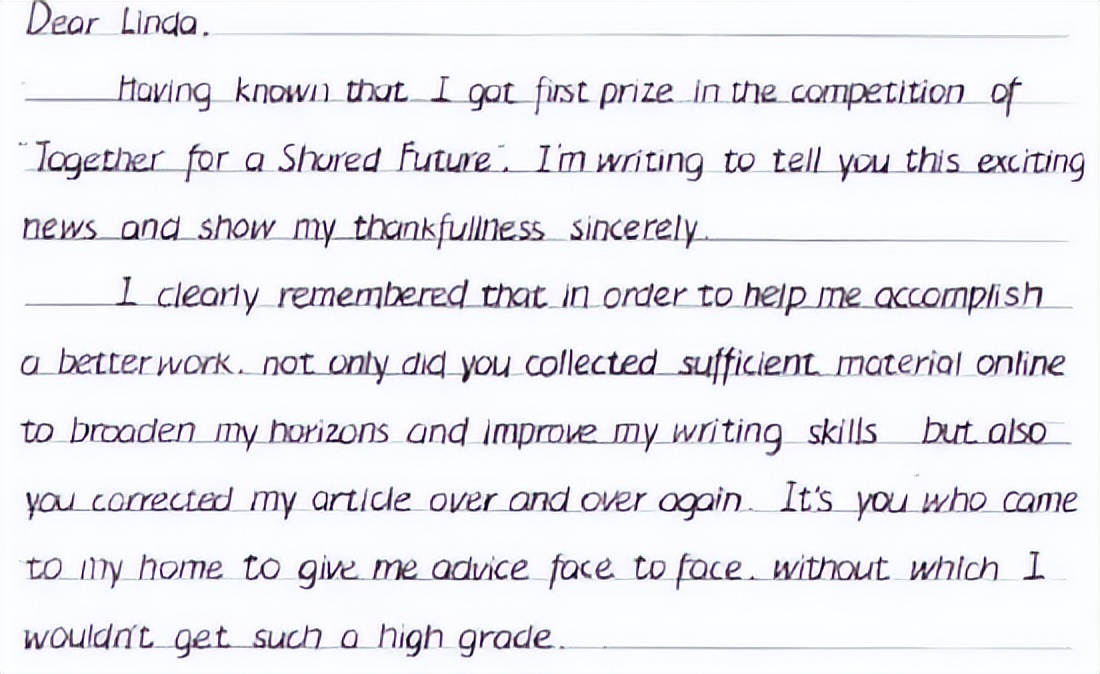 Dear Linda.
Having known that I got first prize in the competition of
"Together for a Shared Future". I'm writing to tell you this exciting
news and show my thankfullness sincerely.
I clearly remembered that in order to help me accomplish
a better work. not only did you collected sufficient material online
to broaden my horizons and improve my writing skills but also
you corrected my article over and over again. It's you who came
to my home to give me advice face to face. without which I
wouldn't get such a high grade.